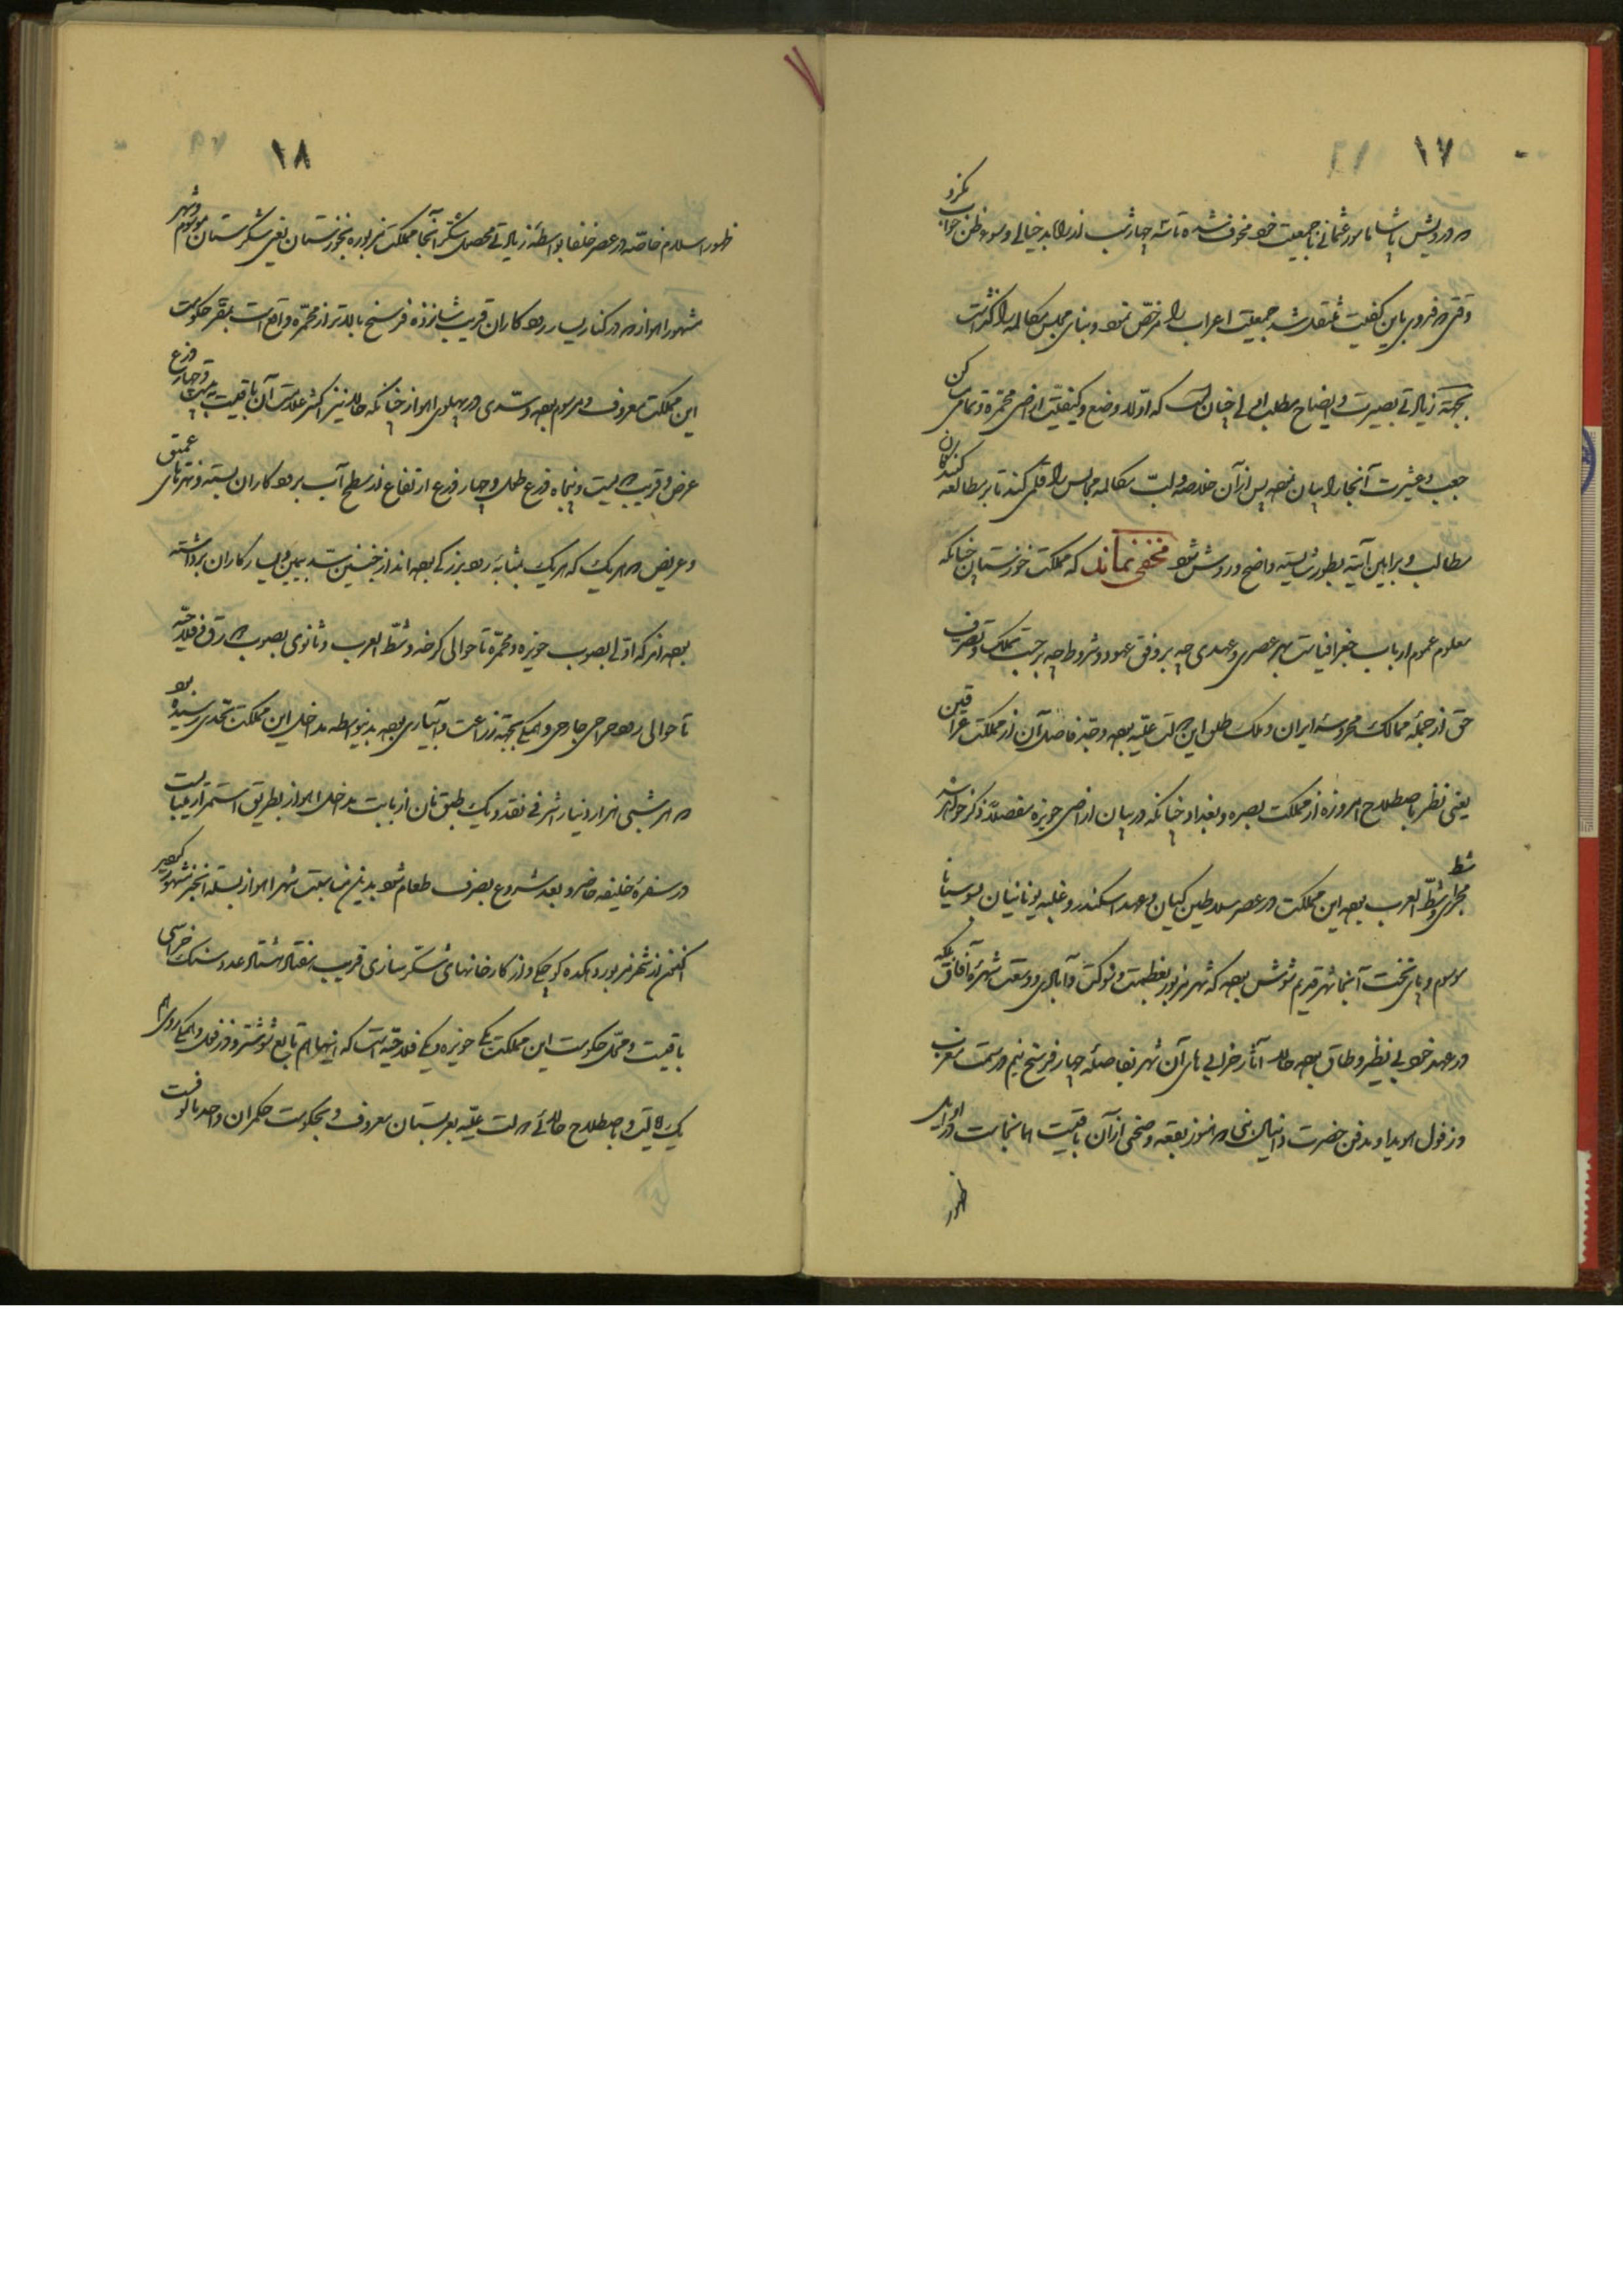 ۱۷
که درویش پاشا مأمور عثمانی با جمعیت خود مخوف شده تا سه چهار شب از راه بد خیالی و سوء ظن خواب نکرد
وقتی که فدوی باین کیفیت منتقل شد جمعیت اعراب را مرخص نمود و بنای مجلس مکالمه را گذاشت
بجهة زیادتی بصیرت و ایضاح مطلب اولی چنان است که اولا وضع و کیفیت اراضی محمره و تمامی کن
جعب و عشیرت آنجا را بیان نموده پس از آن خلاصه و لب مکالمه مجالس را قلمی کند تا بر مطالعه کنندگان
مطالب و براهین آتیه بطور شایسته واضح و روشن شود مخفی نماند که مملکت خوزستان چنانکه
معلوم عموم ارباب جغرافیاست بهر عصری و عهدی چه بر وفق عهود و شروط چه بر حسب تملک و تصرف
حق از جمله ممالک محروسه ایران و ملک طلق این دولت علیه بوده و حد فاصل آن از مملکت عراقین
یعنی نظر باصطلاح امروزه از مملکت بصره و بغداد چنانکه در بیان اراضی حویزه مفصلا ذکر خواهد شد
مجرای شط العرب بوده این مملکت در عصر سلاطین کیان و عهد اسکندر و غلبه یونانیان بسوسیانا
موسوم و پای تخت آنجا شهر قدیم شوش بوده که شهر مزبور بعظمت و شوکت و آبادی و وسعت شهره آفاق بلکه
در عهد خود بی نظیر و طاق بوده حالا آثار خرابی های آن شهر بفاصله چهار فرسخ نیم در سمت مغرب
دزفول هویدا و مدفن حضرت دانیال نبی که هنوز بقعه و ضخمی از آن باقیست همانجاست در اوایل
ظهور
۱۸
ظهور اسلام خاصه در عصر خلفا بواسطه زیادتی محصول شکر آنجا مملکت مزبوره بخوزستان یعنی شکرستان موسوم و شهر
مشهور اهواز که در کنار یسار رود کاران قریب شانزده فرسخ بالاتر از محمره واقع است بمقر حکومت
این مملکت معروف و مرسوم بوده و سدی در پهلوی اهواز چنانکه حالا نیز اکثر علامت آن باقیست بیست و چهار ذرع
عرض و قریب دویست و پنجاه ذرع طول و چهار ذرع ارتفاع از سطح آب بر رود کاران بسته و نهرهای عمیق
و عریض که هر یک بمثابه رود بزرگی بوده اند از جنبین سد بیمین و یسار کاران برداشته
بوده اند که اولی بصوب حویزه و محمره تا حوالی کرخه و شط العرب و ثانوی بصوب شرقی فلاحیه
تا حوالی رود جراحی جاری و همگی بجهة زراعت و آبیاری بوده بدینواسطه مداخل این مملکت بحدی رسیده بود
که هر شبی هزار دینار اشرفی نقد و یک طبق نان از بابت مداخل اهواز بطریق استمرار
در سفره خلیفه حاضر و بعد شروع بصرف طعام شود بدین مناسبت شهر اهواز بسلة الخبز مشهور گردید
اکنون از شهر مزبور دهکده کوچکی و از کارخانهای شکر سازی قریب هفتاد هشتاد عدد سنک خراسی
باقیست و محل حکومت این مملکت یکی حویزه و یکی فلاحیه است که اینها هم تابع شوشتر و دزفول و همگی
یک ایالت و باصطلاح حالای دولت علیه بعربستان معروف و بحکومت حکمران واحد